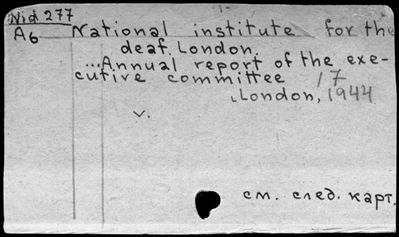 Nid 277
A6 National institute for the
deaf. London.
...Annual report of the exe-
cutive committee 17
London, 1944
v.
см. след. карт.